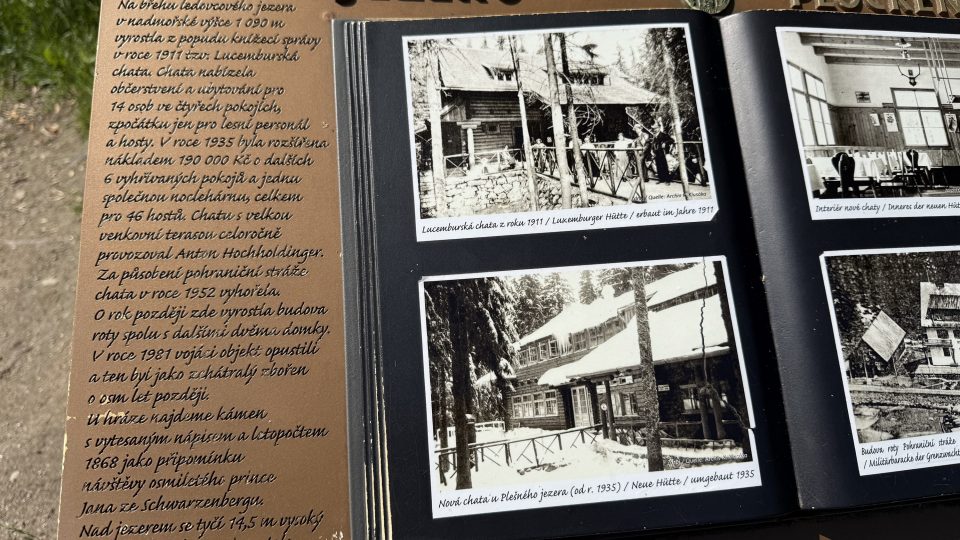 Na břehu ledovcového jezera
v nadmořské výšce 1 090 m
vyrostla z popudu knížecí správy
v roce 1911 tzv. Lucemburská
chata. Chata nabízela
občerstvení a ubytování pro
14 osob ve čtyřech pokojích,
zpočátku jen pro lesní personál
a hosty. V roce 1935 byla rozšířena
nákladem 190 000 Kč o dalších
6 vyhřívaných pokojů a jednu
společnou noclehárnu, celkem
pro 46 hostů. Chatu s velkou
venkovní terasou celoročně
provozoval Anton Hochholdinger.
Za působení pohraniční stráže
chata v roce 1952 vyhořela.
O rok později zde vyrostla budova
roty spolu s dalšími dvěma domky.
V roce 1981 vojáci objekt opustili
a ten byl jako zchátralý zbořen
o osm let později.
U hráze najdeme kámen
s vytesaným nápisem a letopočtem
1868 jako připomínku
návštěvy osmiletého prince
Jana ze Schwarzenbergu.
Nad jezerem se tyčí 14,5 m vysoký
Quelle: Archiv
Lucemburská chata z roku 1911 / Luxemburger Hütte / erbaut im Jahre 1911
Nová chata u Plešného jezera (od r. 1935) / Neue Hütte / umgebaut 1935
Interiér nové chaty / Inneres der neuen Hüt
Budova roty Pohraniční stráže
/ Militärbaracke der Grenzwacht